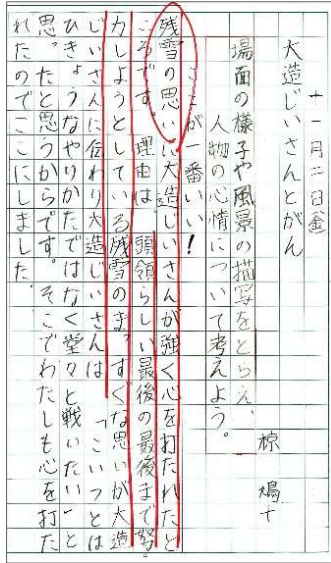 十一月二日金
大造じいさんとがん
椋 鳩十
場面の様子や風景の描写をとらえ、
人物の心情について考えよう。
ここが一番いい!
残雪の思いに大造じいさんが強く心を打たれたと
ころです。理由は、頭領らしい最後の最後まで努
力しようとしている残雪のま、すぐな思いが大造
じいさんに伝わり大造じいさんは「こいつとは
ひきょうなやりかたではなく堂々と戦いたい」と
思。たと思うからです。そこでわたしも心を打た
れたのでここにしました。